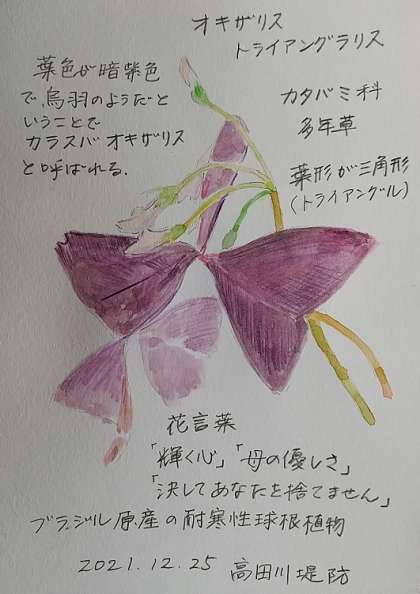 オキザリス
トライアングラリス
葉色が暗紫色
で、烏羽のようだと
いうことで
カラスバオキザリス
と呼ばれる.
カタバミ科
多年草
葉形が三角形
(トライアングル)
花言葉
「輝く心」「母の優しさ」
「決してあなたを捨てません」
ブラジル原産の耐寒性球根植物
2021.12.25 高田川堤防